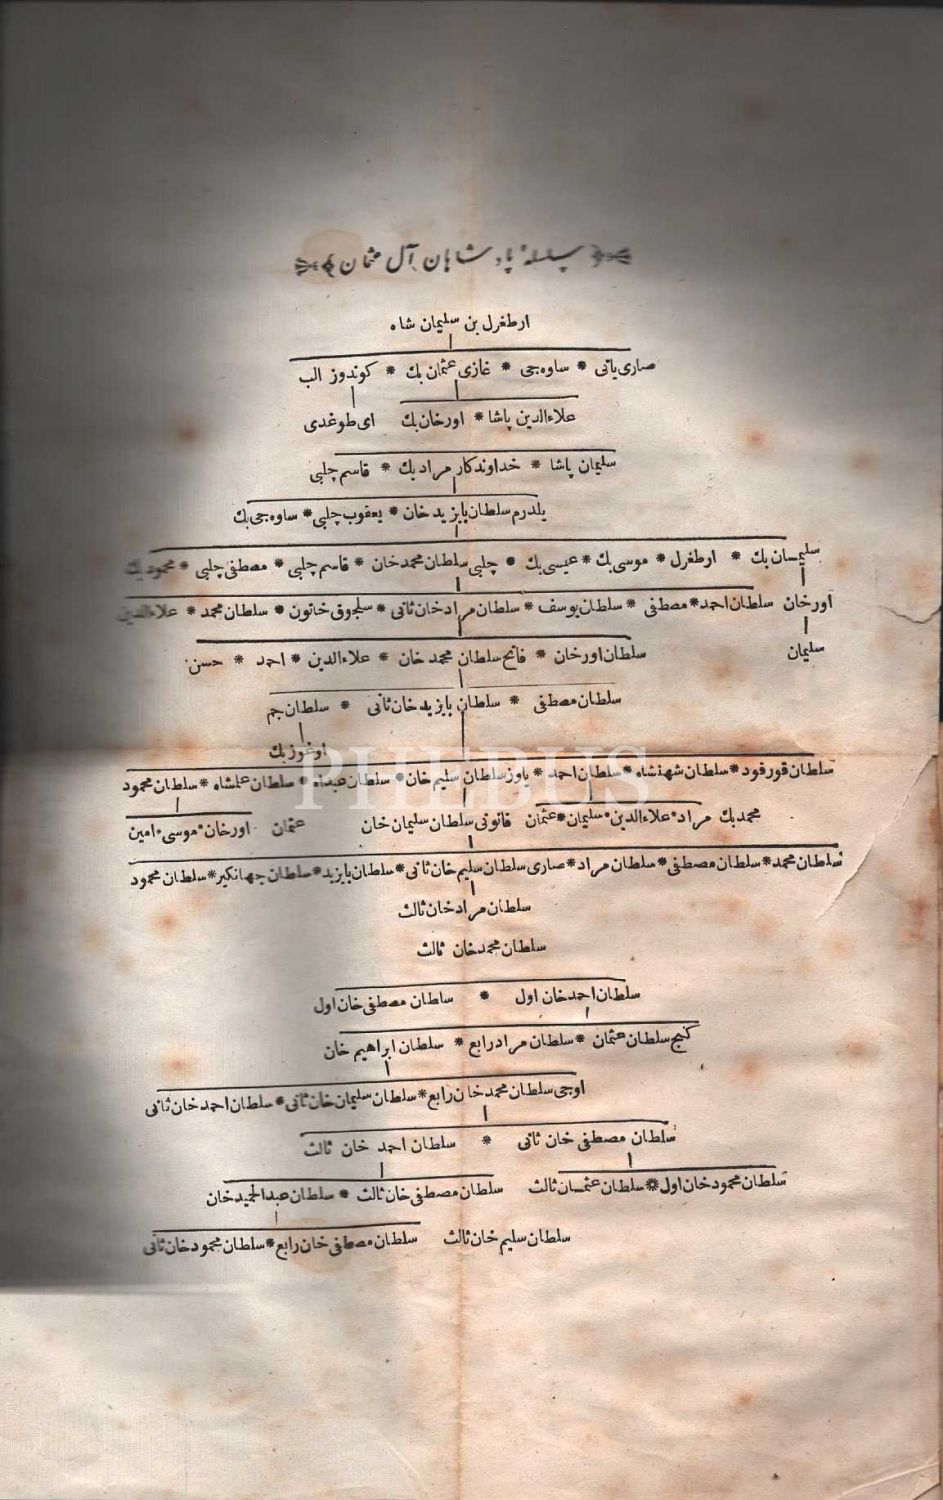 سلسلهٔ پادشاهان آل عثمان
ارطغرل بن سلیمان شاه
صاری یاتی * ساوه جی * غازی عثمان بك * کوندوز الب
علاءالدین پاشا * اورخان بك ای طوغدی
سلیمان پاشا * خداوندکار مراد بك * قاسم چلبی
یلدرم سلطان بایزید خان * یعقوب چلبی * ساوه جی بك
سلیمان بك * ارطغرل * موسی بك * عیسی بك * چلبی سلطان محمد خان * قاسم چلبی * مصطفی چلبی * محمود بك
اورخان سلطان احمد * مصطفی * سلطان یوسف * سلطان مراد خان ثانی * سلجوق خاتون * سلطان محمد * علاءالدین
سلیمان
سلطان اورخان * فاتح سلطان محمد خان * علاءالدین * احمد * حسن
سلطان مصطفی * سلطان بایزید خان ثانی * سلطان جم
اوغوز بك
سلطان قورقود * سلطان شهنشاه * سلطان احمد * یاوز سلطان سلیم خان * سلطان عبدالله * سلطان علمشاه * سلطان محمود
محمد بك مراد * علاءالدین * سلیمان * عثمان قانونی سلطان سلیمان خان عثمان اورخان * موسی * امین
سلطان محمد * سلطان مصطفی * سلطان مراد * صاری سلطان سلیم خان ثانی * سلطان بایزید * سلطان جهانکیر * سلطان محمود
سلطان مراد خان ثالث
سلطان محمد خان ثالث
سلطان احمد خان اول * سلطان مصطفی خان اول
کنج سلطان عثمان * سلطان مراد رابع * سلطان ابراهیم خان
اوجی سلطان محمد خان رابع * سلطان سلیمان خان ثانی * سلطان احمد خان ثانی
سلطان مصطفی خان ثانی * سلطان احمد خان ثالث
سلطان محمود خان اول * سلطان عثمان ثالث سلطان مصطفی خان ثالث * سلطان عبدالحمید خان
سلطان سلیم خان ثالث سلطان مصطفی خان رابع * سلطان محمود خان ثانی
PHEBUS